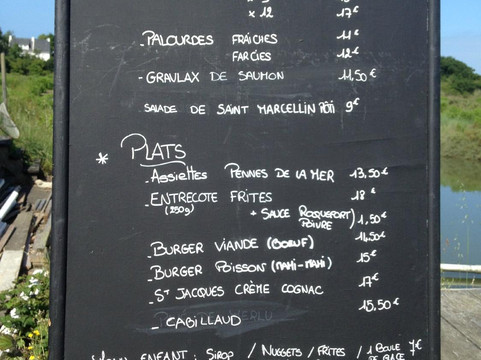 x 12 17€
PALOURDES FRAICHES 11€
FARCIES 12€
- GRAVLAX DE SAUMON 11,50€
SALADE DE SAINT MARCELLIN RÔTI 9€
* PLATS
- Assiettes PENNES DE LA MER 13,50€
- ENTRECOTE FRITES 18€
(250g) + SAUCE ROQUEFORT) 1,50€
POIVRE
- BURGER VIANDE (BOEUF) 14,50€
- BURGER POISSON (MAHI-MAHI) 15€
- ST JACQUES CRÈME COGNAC 17€
- CABILLAUD 15,50€
ENFANT : SIROP / NUGGETS / FRITES / 1 BOULE 7€
DE GLACE